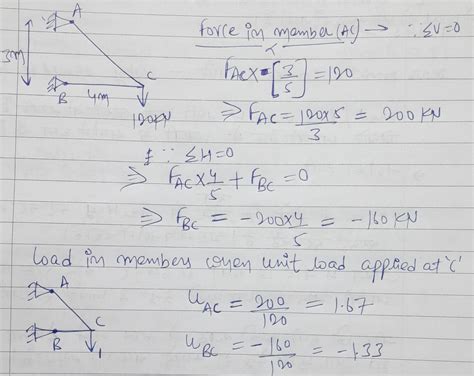 A
3m
B
4m
C
120KN
Force in member (AC) → ∵ ΣV=0
F_AC × [3/5] = 120
⇒ F_AC = 120×5/3 = 200 KN
∵ ΣH=0
⇒ F_AC × 4/5 + F_BC = 0
⇒ F_BC = -200×4/5 = -160 KN
Load in members when unit load applied at 'C'
A
B
C
1
u_AC = 200/120 = 1.67
u_BC = -160/120 = -1.33